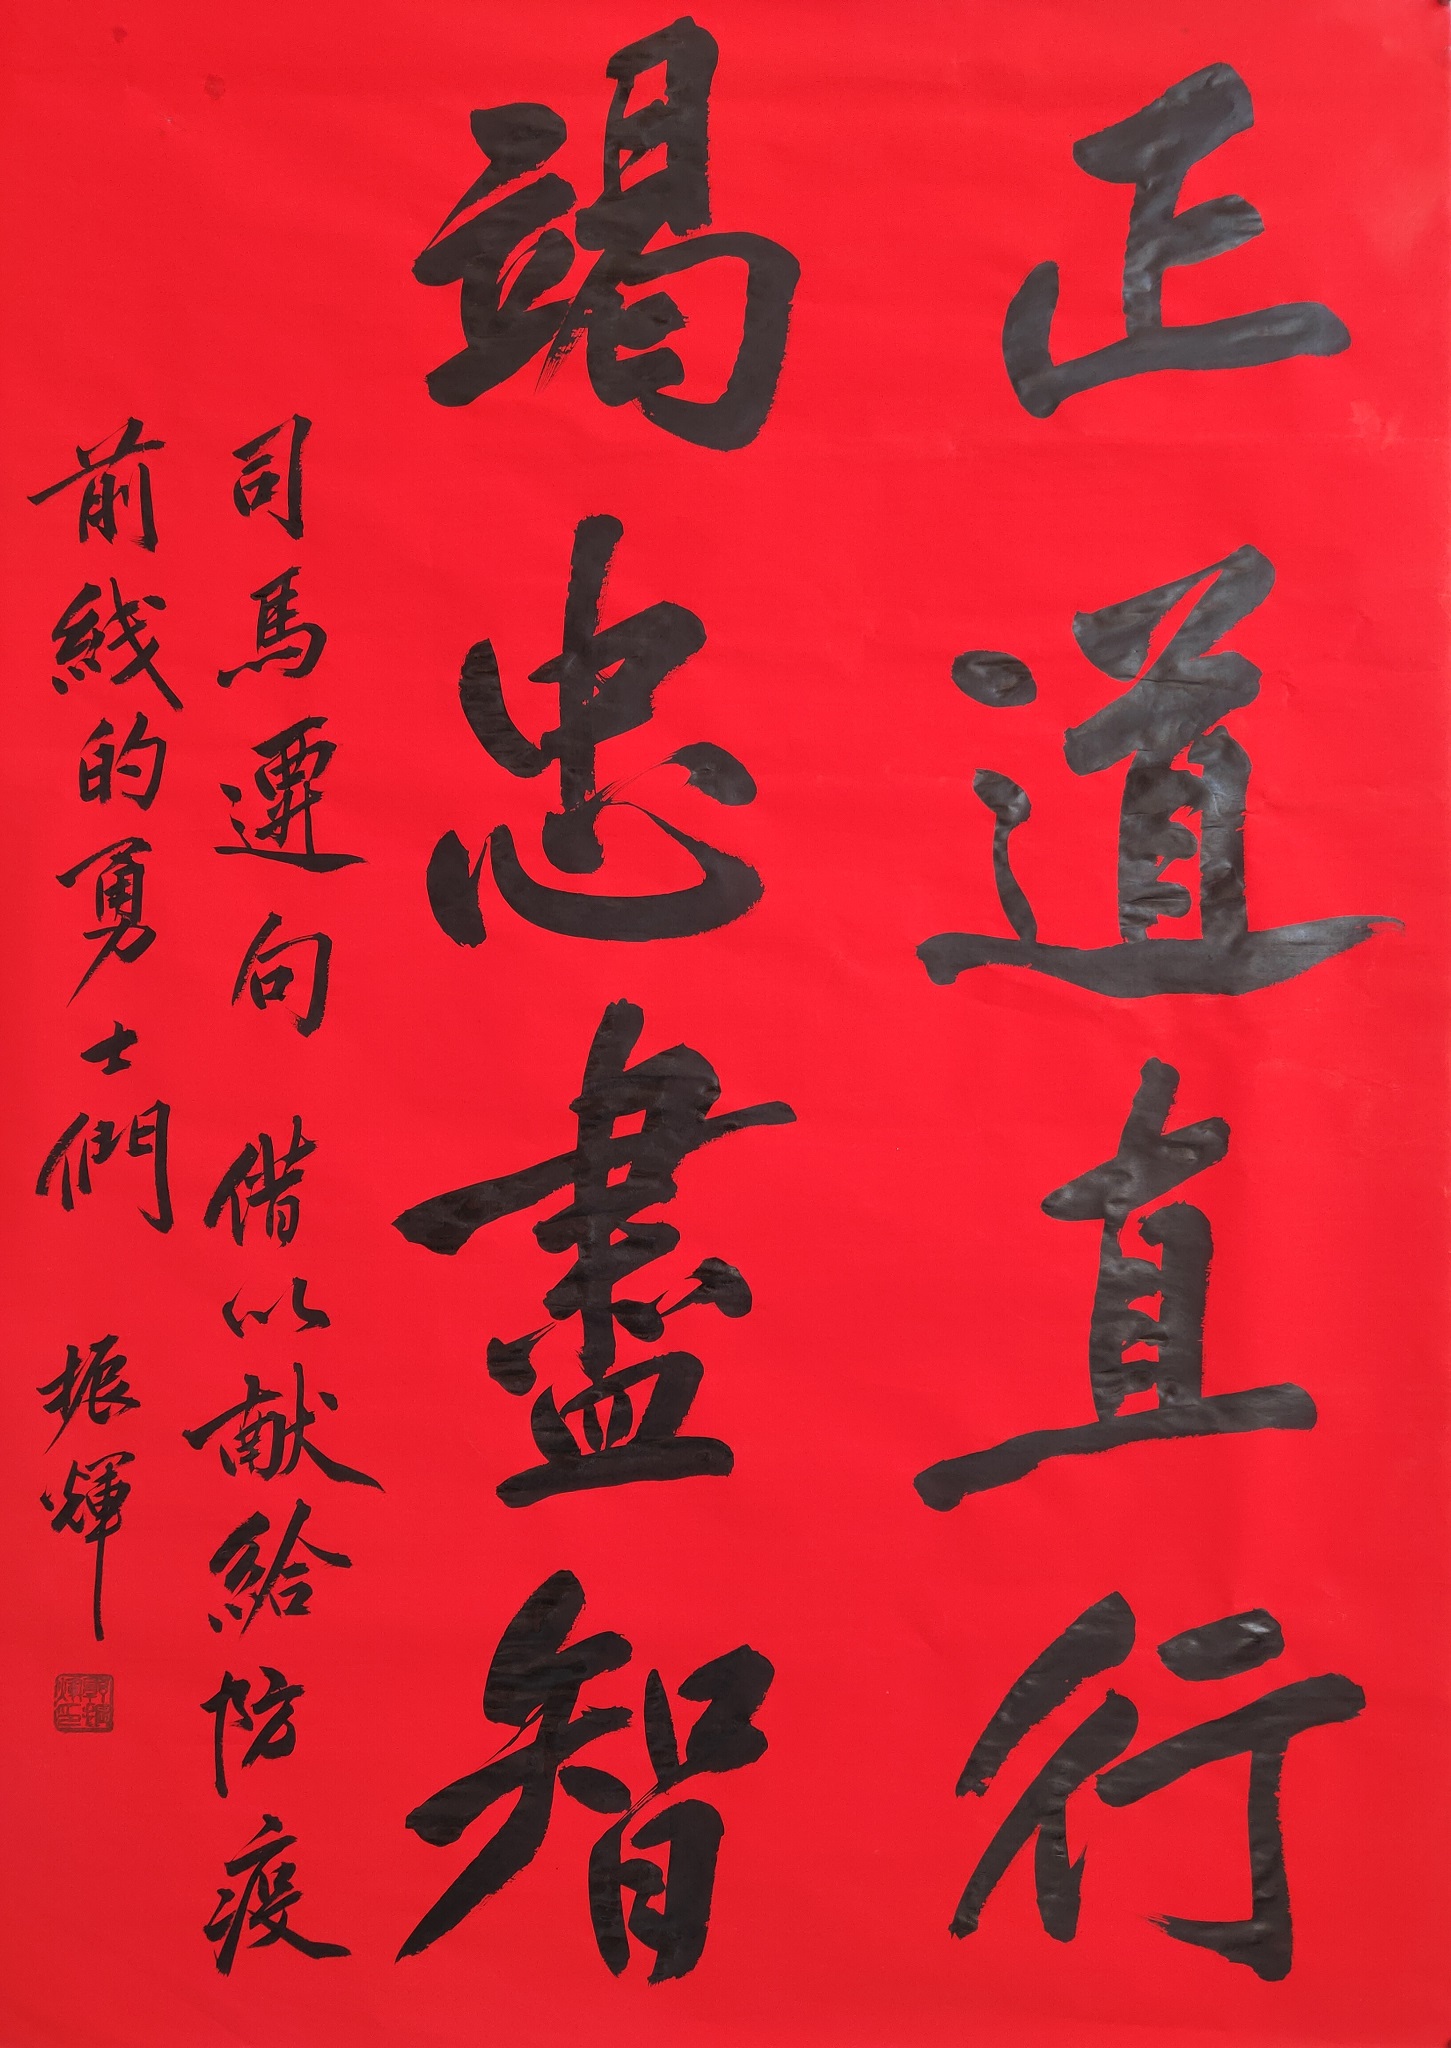 正道直行
竭忠盡智
司馬遷句 借以献給防疫
前綫的勇士們 振輝